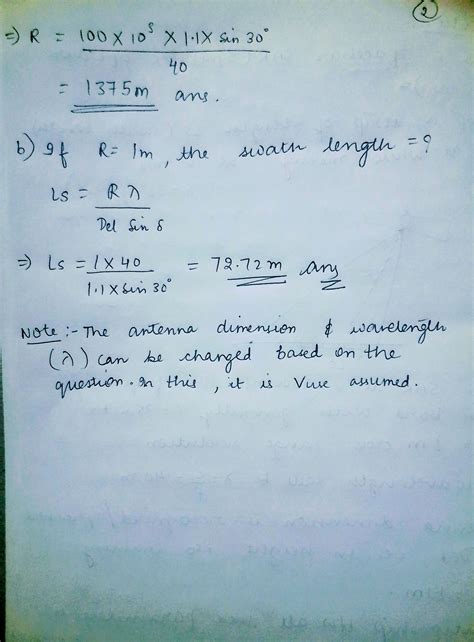 2
=) R = 100 X 10³ X 1.1 X sin 30° / 40
= 1375m ans.
b) If R = 1m, the swath length = ?
Ls = R λ / Del Sin δ
=) Ls = 1 X 40 / 1.1 X sin 30° = 72.72 m ans
Note :- The antenna dimension & wavelength
(λ) can be changed based on the
question. In this, it is assumed.